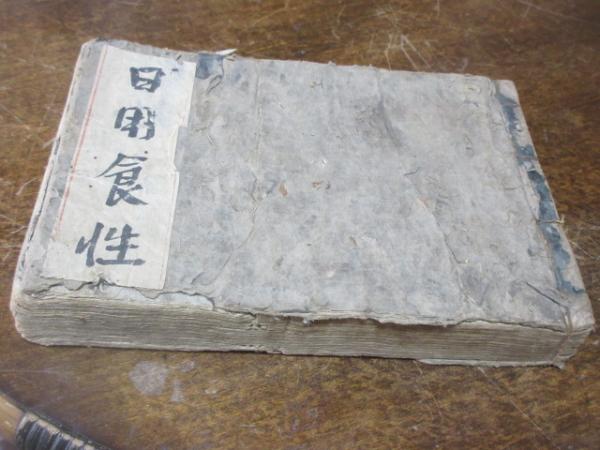 日用食性